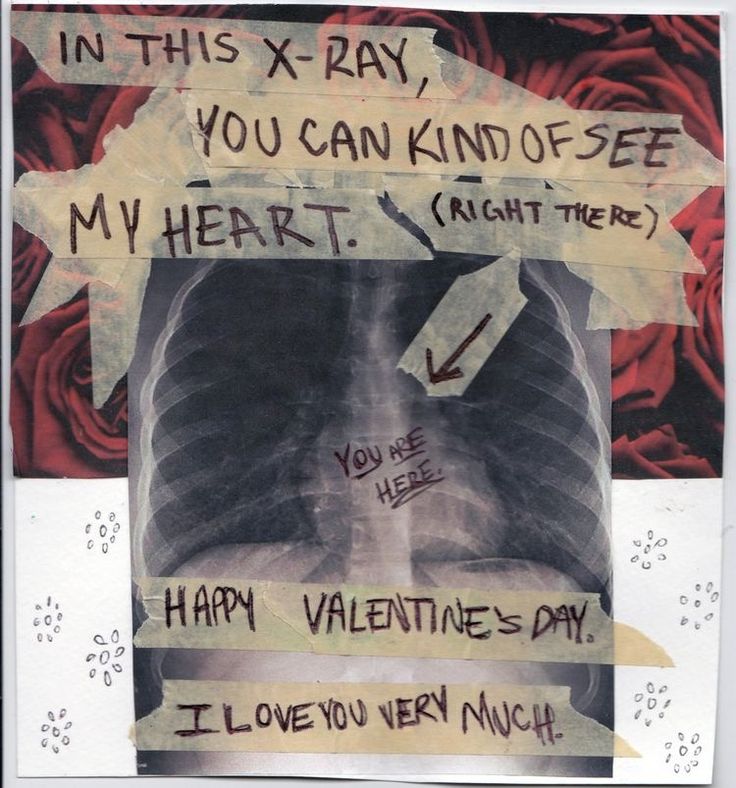 IN THIS X-RAY,
YOU CAN KIND OF SEE
MY HEART. (RIGHT THERE)
YOU ARE
HERE.
HAPPY VALENTINE'S DAY.
I LOVE YOU VERY MUCH.